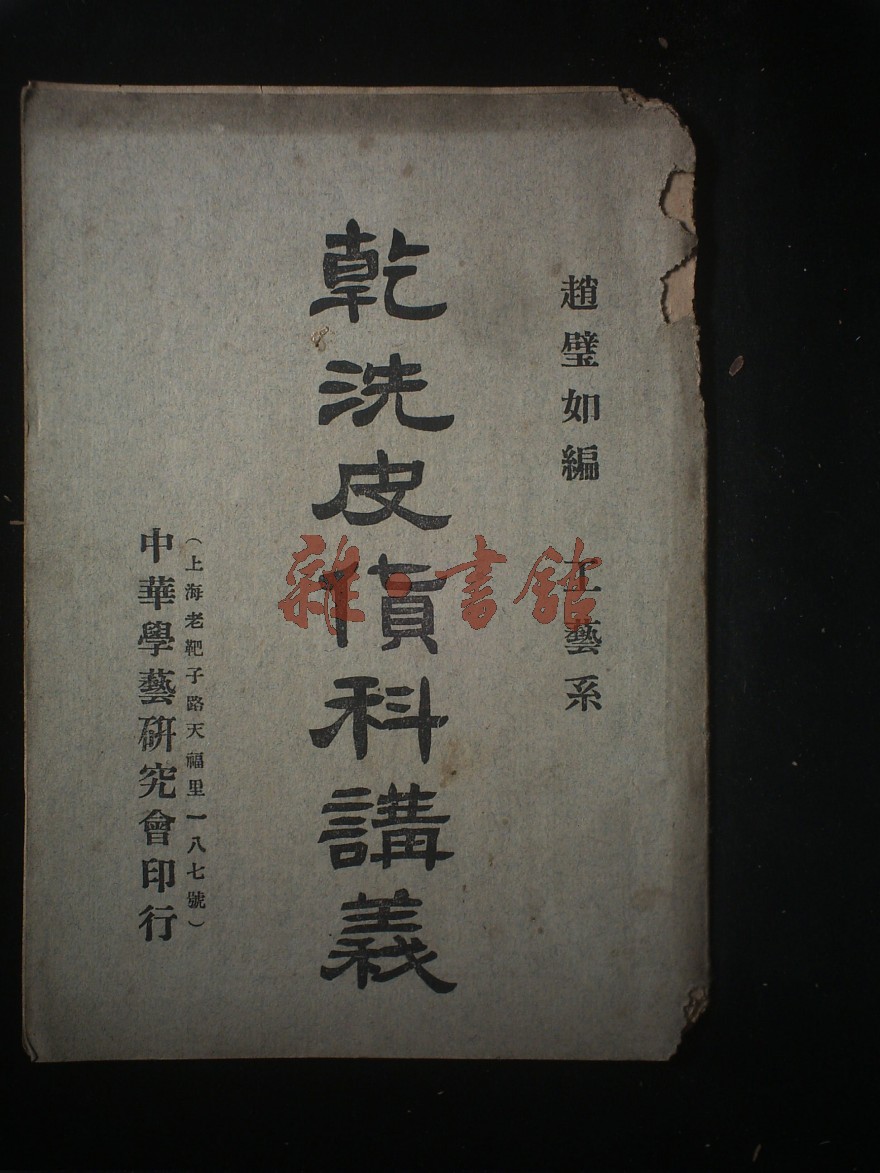 趙璧如編 工藝系
乾洗皮貨科講義
(上海老靶子路天福里一八七號)
中華學藝硏究會印行
雜·書館